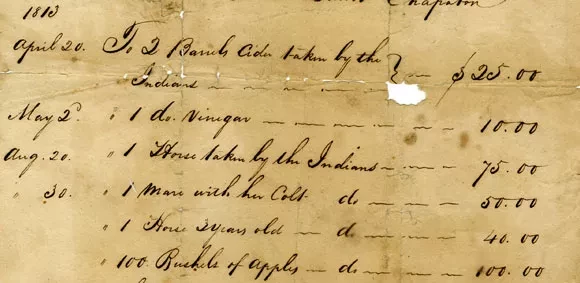 Chapoton
1813
April 20. To 2 Barrels Cider taken by the
Indians — — — — — — } — $25.00
May 2d " 1 do. Vinegar — — — — — — 10.00
Aug. 20. " 1 Horse taken by the Indians — — — 75.00
" 30. " 1 Mare with her Colt do — — — 50.00
" 1 Horse 3 years old — do — — — 40.00
" 100 Bushels of Apples — do — — — 100.00